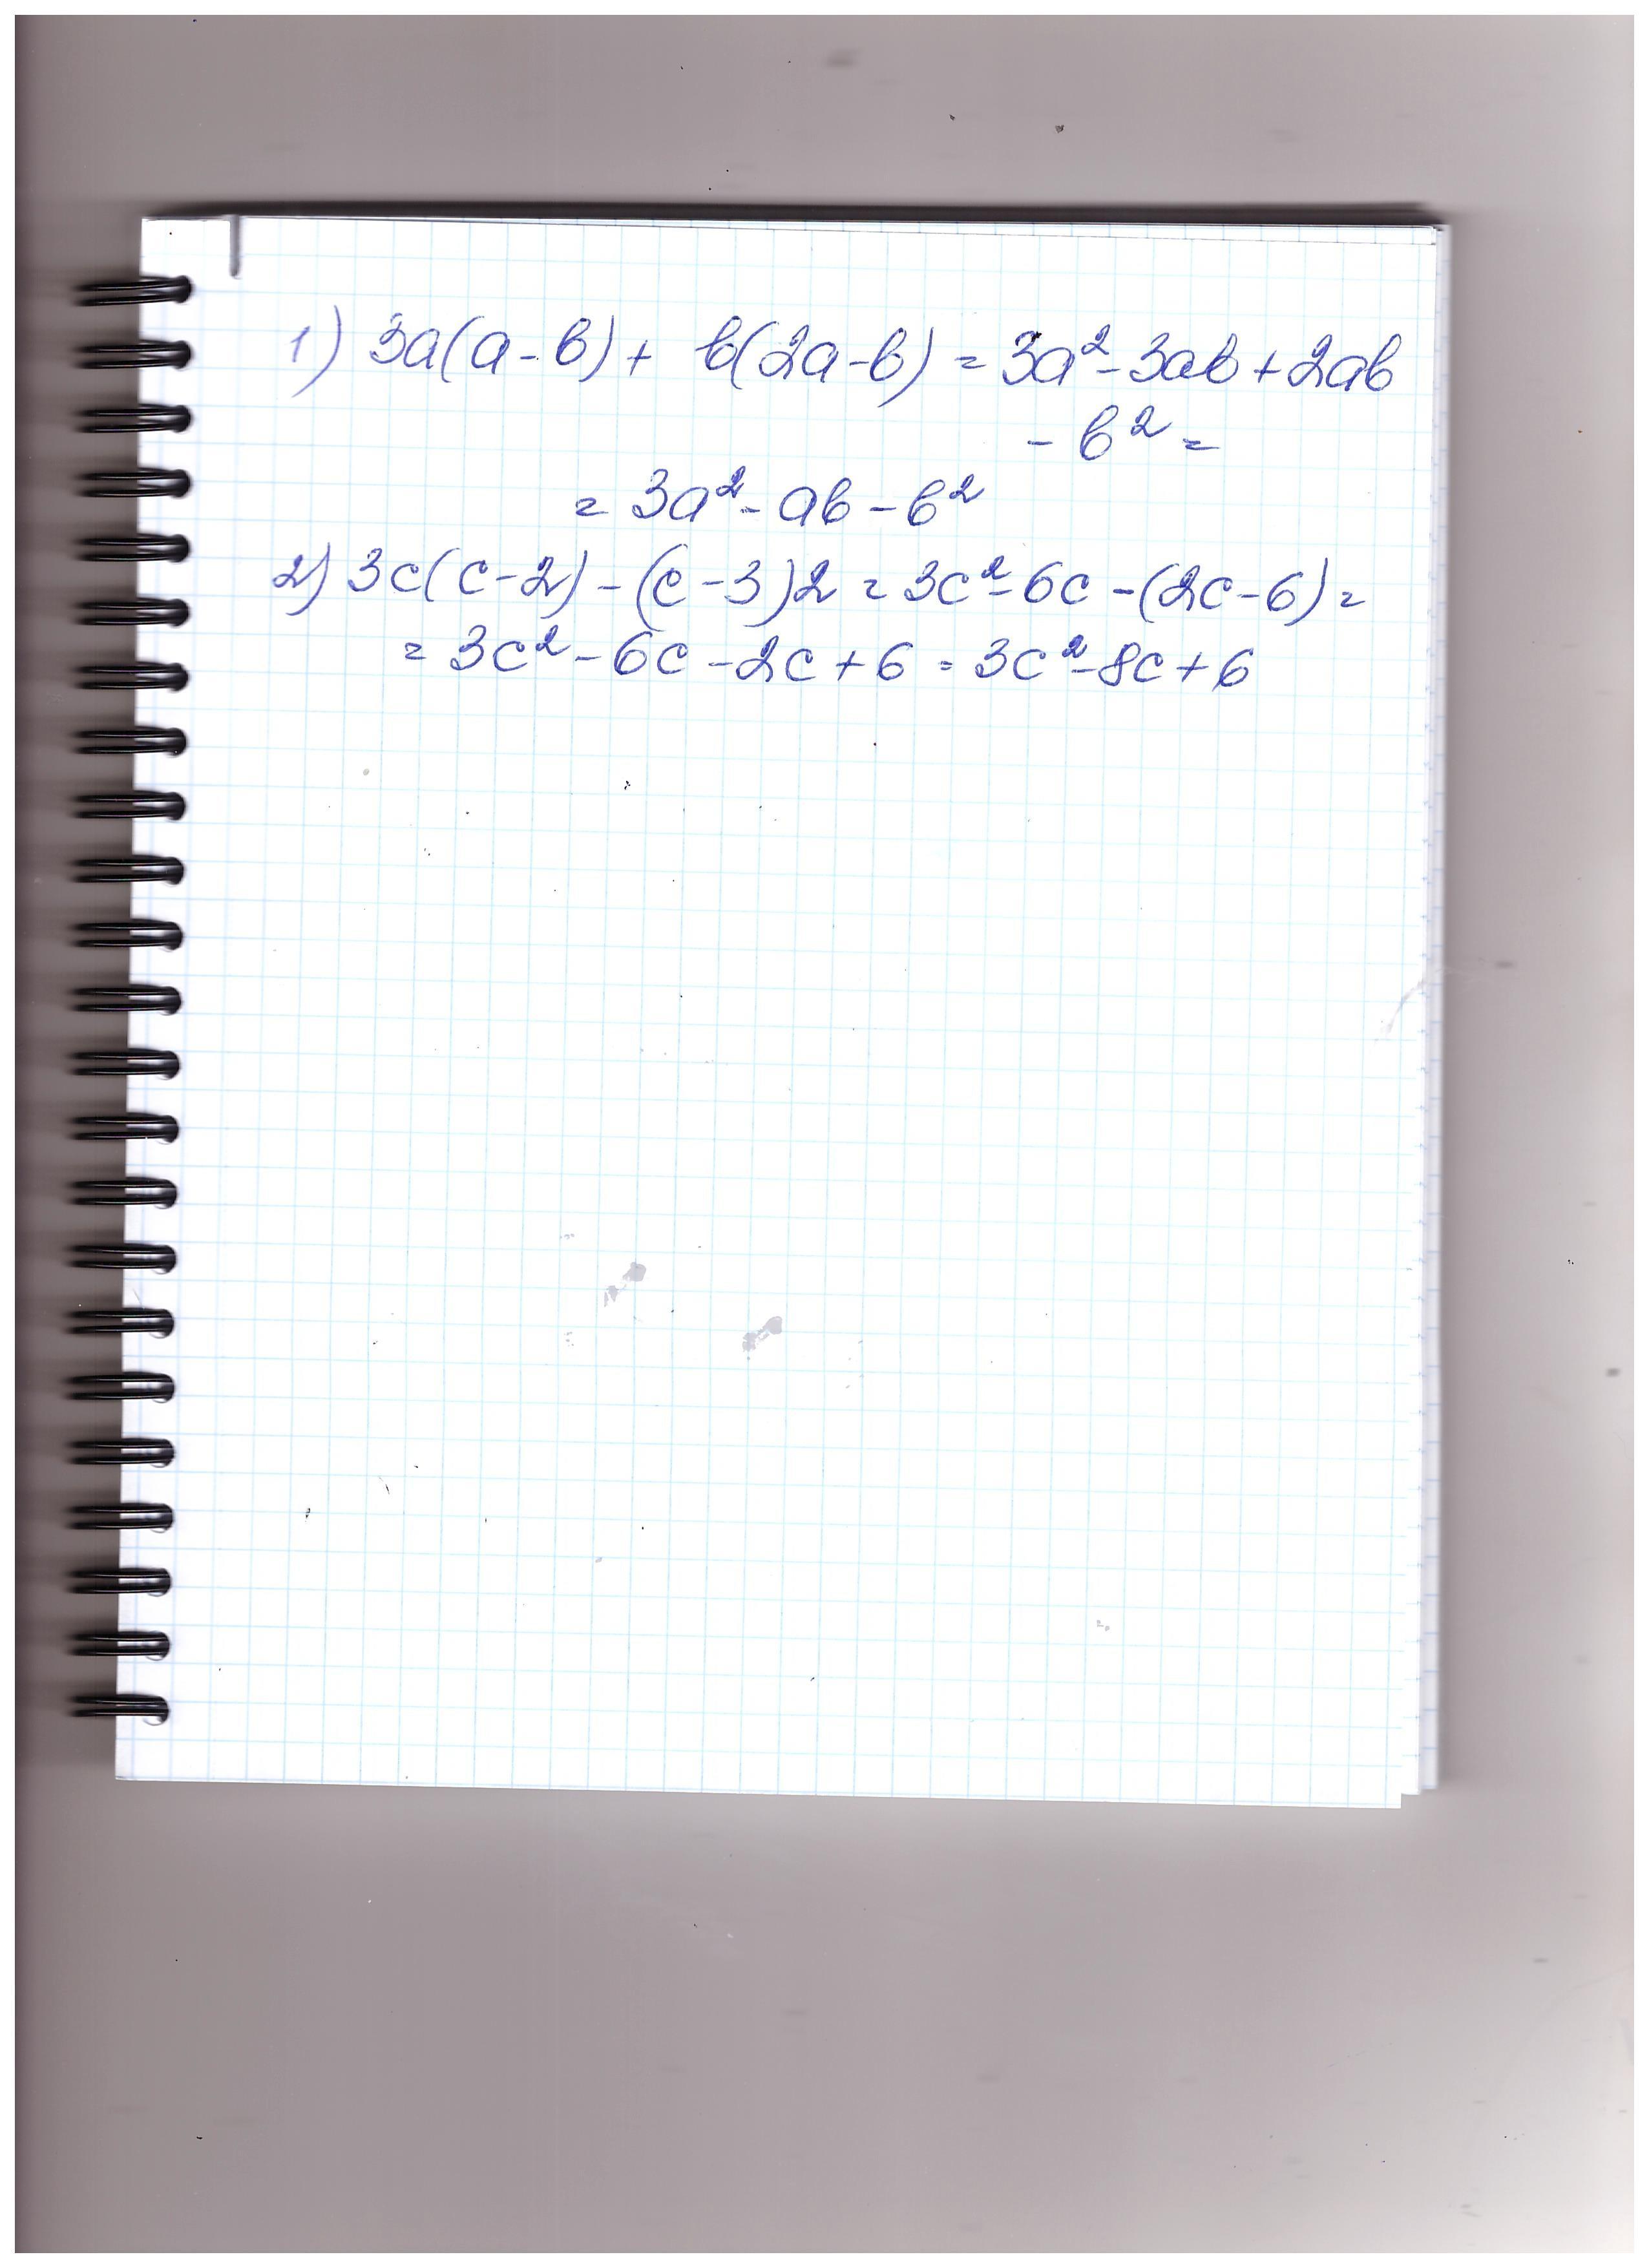 1) 3a(a-b)+ b(2a-b) = 3a²-3ab+2ab
- b² =
= 3a²-ab-b²
2) 3c(c-2)-(c-3)2 = 3c²-6c-(2c-6)=
= 3c²-6c-2c+6 = 3c²-8c+6